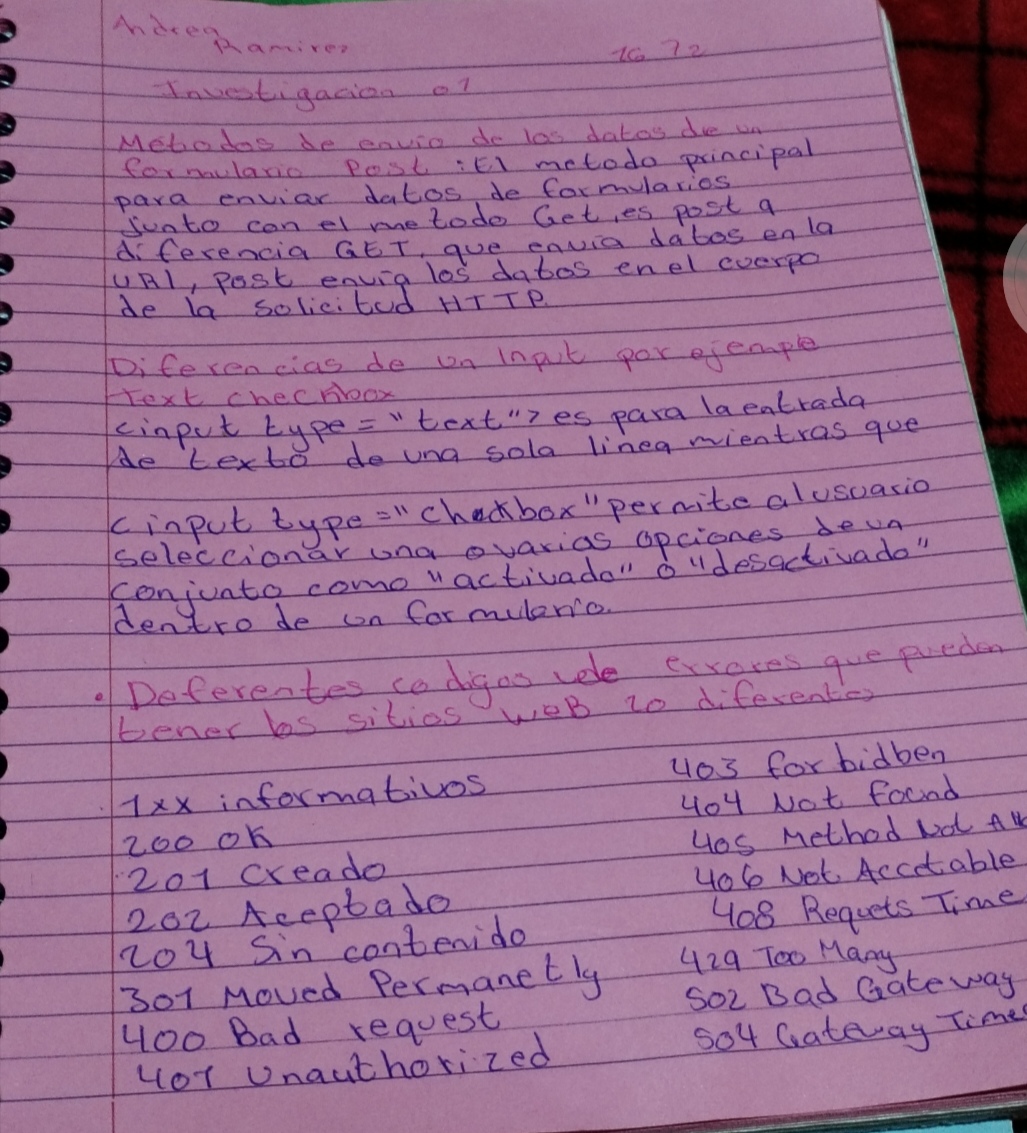 Andrea
Ramirez
16 72
Investigacion 01
Metodos de envio de los datos de un
formulario Post : El metodo principal
para enviar datos de formularios
junto con el metodo Get, es post a
diferencia GET, que envia datos en la
URl, post envia los datos en el cuerpo
de la solicitud HTTP.
Diferencias de un Input por ejemplo
Text checkbox
<input type="text"> es para la entrada
de texto de una sola linea mientras que
<input type="checkbox" permite al usuario
seleccionar una o varias opciones de un
conjunto como "activado" o "desactivado"
dentro de un formulario.
• Deferentes codigos de errores que pueden
tener los sitios weB 20 diferentes
1xx informativos
200 OK
201 Creado
202 Aceptado
204 Sin contenido
301 Moved Permanetly
400 Bad request
401 Unauthorized
403 forbidben
404 Not found
405 Method Not All
406 Not Accetable
408 Requets Time
429 Too Many
502 Bad Gateway
504 Gateway Time